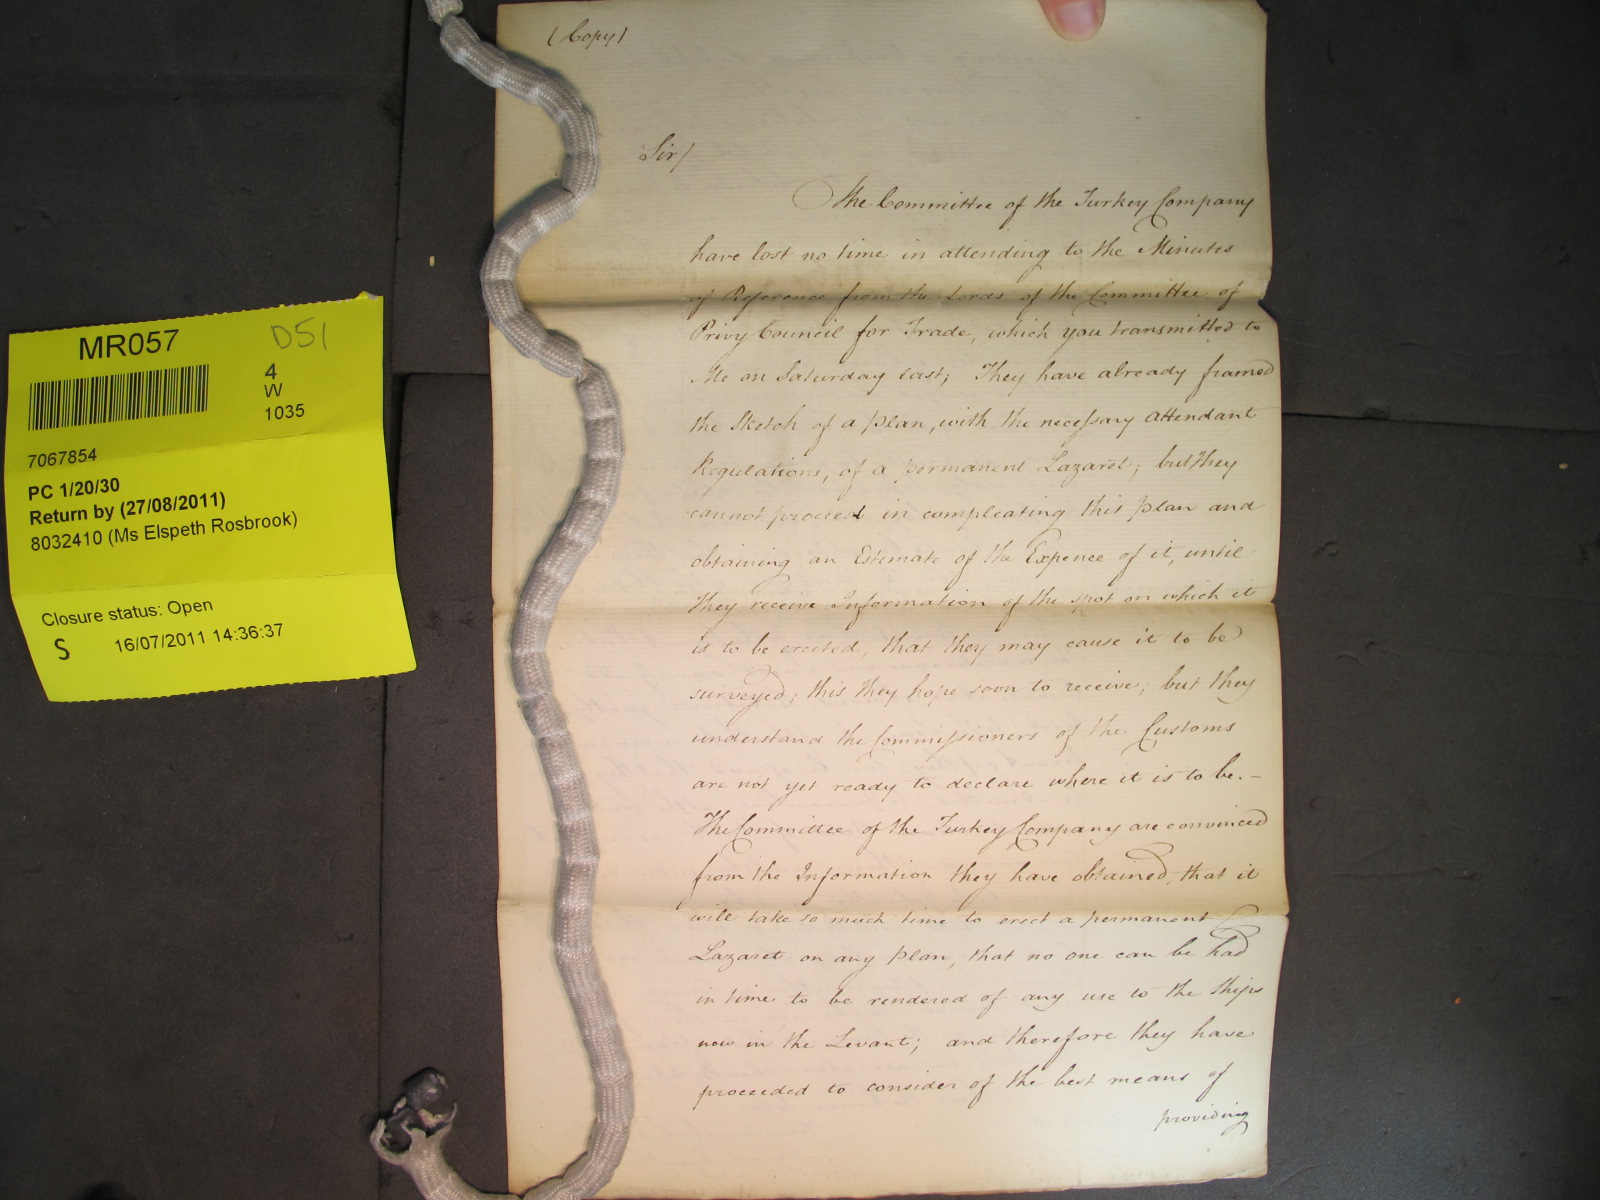 (Copy)
Sir/
The Committee of the Turkey Company
have lost no time in attending to the Minutes
of Reference from the Lords of the Committee of
Privy Council for Trade, which you transmitted to
Me on Saturday last; They have already framed
the Sketch of a plan, with the necessary attendant
Regulations, of a permanent Lazaret; but they
cannot proceed in compleating this plan and
obtaining an Estimate of the Expence of it, until
they receive Information of the spot on which it
is to be erected, that they may cause it to be
surveyed; this they hope soon to receive; but they
understand the Commissioners of the Customs
are not yet ready to declare where it is to be. –
The Committee of the Turkey Company are convinced
from the Information they have obtained, that it
will take so much time to erect a permanent
Lazaret on any plan, that no one can be had
in time to be rendered of any use to the Ships
now in the Levant; and therefore they have
proceeded to consider of the best means of
providing
MR057
D51
4
W
1035
7067854
PC 1/20/30
Return by (27/08/2011)
8032410 (Ms Elspeth Rosbrook)
Closure status: Open
S 16/07/2011 14:36:37